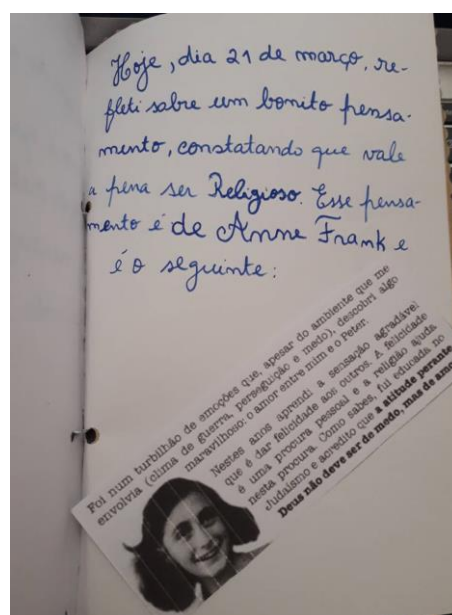 Hoje, dia 21 de março, re-
fleti sobre um bonito pensa-
mento, constatando que vale
a pena ser Religioso. Esse pensa-
mento é de Anne Frank e
é o seguinte:
Foi num turbilhão de emoções que, apesar do ambiente que me
envolvia (clima de guerra, perseguição e medo), descobri algo
maravilhoso: o amor entre mim e o Peter.
Nestes anos aprendi a sensação agradável
que é dar felicidade aos outros. A felicidade
é uma procura pessoal e a religião ajuda
nesta procura. Como sabes, fui educada no
Judaísmo e acredito que a atitude perante
Deus não deve ser de medo, mas de amo